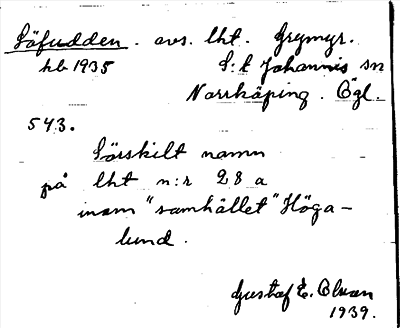 Löfudden. avs. lht. Grymyr.
hb 1935 S:t Johannis sn
Norrköping. Ögl.
543.
Särskilt namn
på lht n:r 28a
inom "samhället" Höga-
lund.
Gustaf E. Olsson
1939.